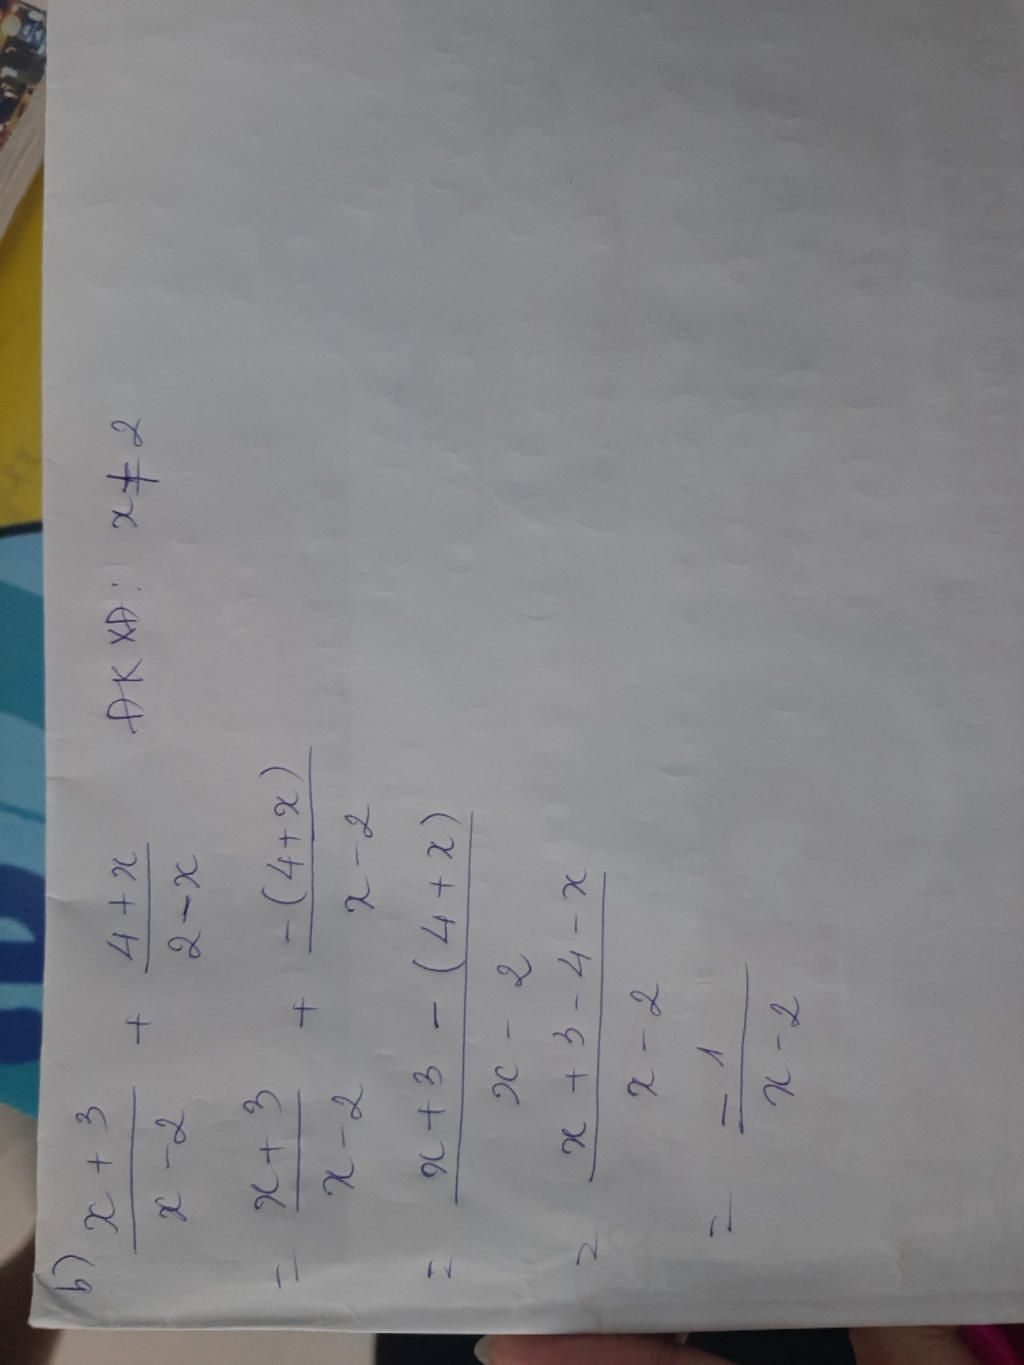 b) \frac{x+3}{x-2} + \frac{4+x}{2-x} ĐKXĐ: x ≠ 2
= \frac{x+3}{x-2} + \frac{-(4+x)}{x-2}
= \frac{x+3-(4+x)}{x-2}
= \frac{x+3-4-x}{x-2}
= \frac{-1}{x-2}